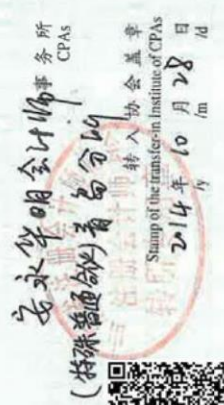 安永华明会计师事务所
CPAs
(特殊普通合伙)青岛分所
转入协会盖章
Stamp of the transfer-in Institute of CPAs
2014年10月28日
/y /m /d